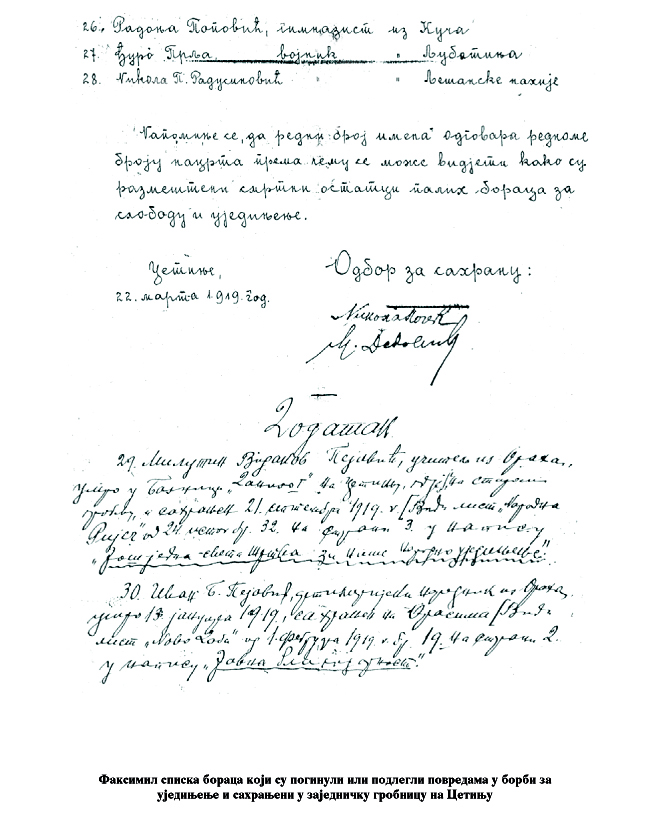 26. Радоња Поповић, гимназист из Куча
27. Ђуро Прља војник " Љуботиња
28. Никола П. Радусиновић " " Љешанске нахије
Напомиње се, да редни број имена одговара редноме
броју нацрта према чему се може видјети како су
размештени смртни остатци палих бораца за
слободу и уједињење.
Цетиње,
22. марта 1919. год.
Одбор за сахрану:
Никола
М.
Додатак
29. Милутин Пејовић, учитељ из Ораха,
умро у болници " на Цетињу,
и сахрањен 21. септембра 1919. г. [Види лист „Народна
Ријеч" од 24. септ. бр. 32. на страни 3. у напису
„Још једна света жртва за наше уједињење"
30. Иван Б. Пејовић, из Ораха,
умро 13 јануара 1919, сахрањен на Орасима [Види
лист „Ново Доба" од 1. фебруара 1919 г. бр. 19. на страни 2.
у напису „Јавна благодарност".
Факсимил списка бораца који су погинули или подлегли повредама у борби за
уједињење и сахрањени у заједничку гробницу на Цетињу